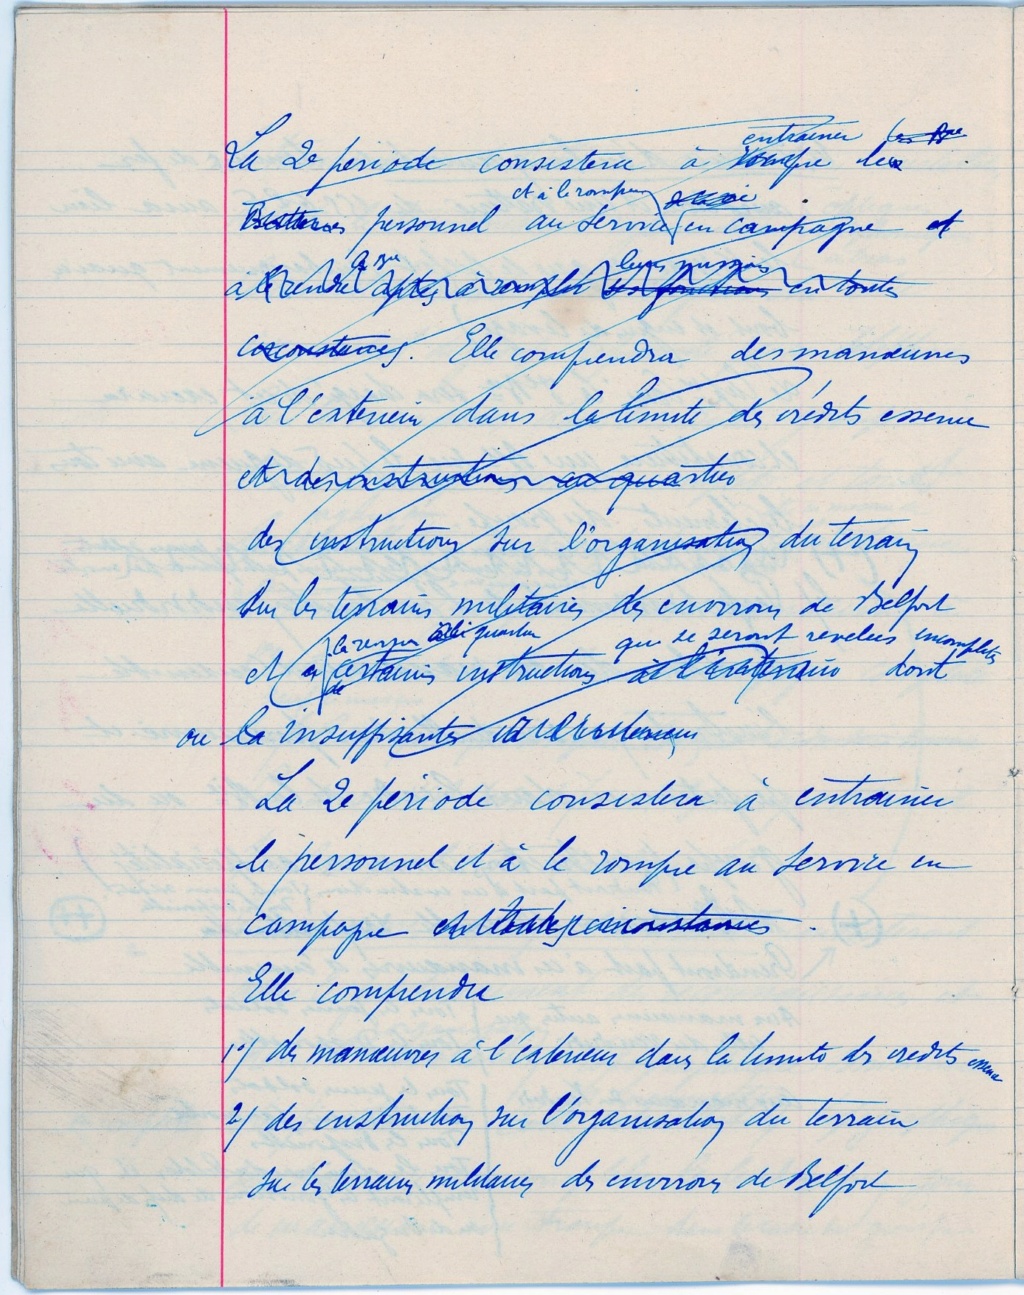 La 2e periode consistera à rompre le entrainer
Batteries personnel au service et à le rompre en campagne et
à le rendre aptes à remplir leurs missions ses fonctions en toutes
circonstances. Elle comprendra des manœuvres
à l'exterieur dans la limite des crédits essence
et des instructions au quartier
des instructions sur l'organisation du terrain
sur les terrains militaires des environs de Belfort
et certaines instructions que se seront revelées incomplètes dont
ou la insuffisantes
La 2e période consistera à entrainer
le personnel et à le rompre au service en
campagne et toutes circonstances.
Elle comprendra
1°/ des manœuvres à l'exterieur dans la limite des credits essence
2/ des instructions sur l'organisation du terrain
sur les terrains militaires des environs de Belfort